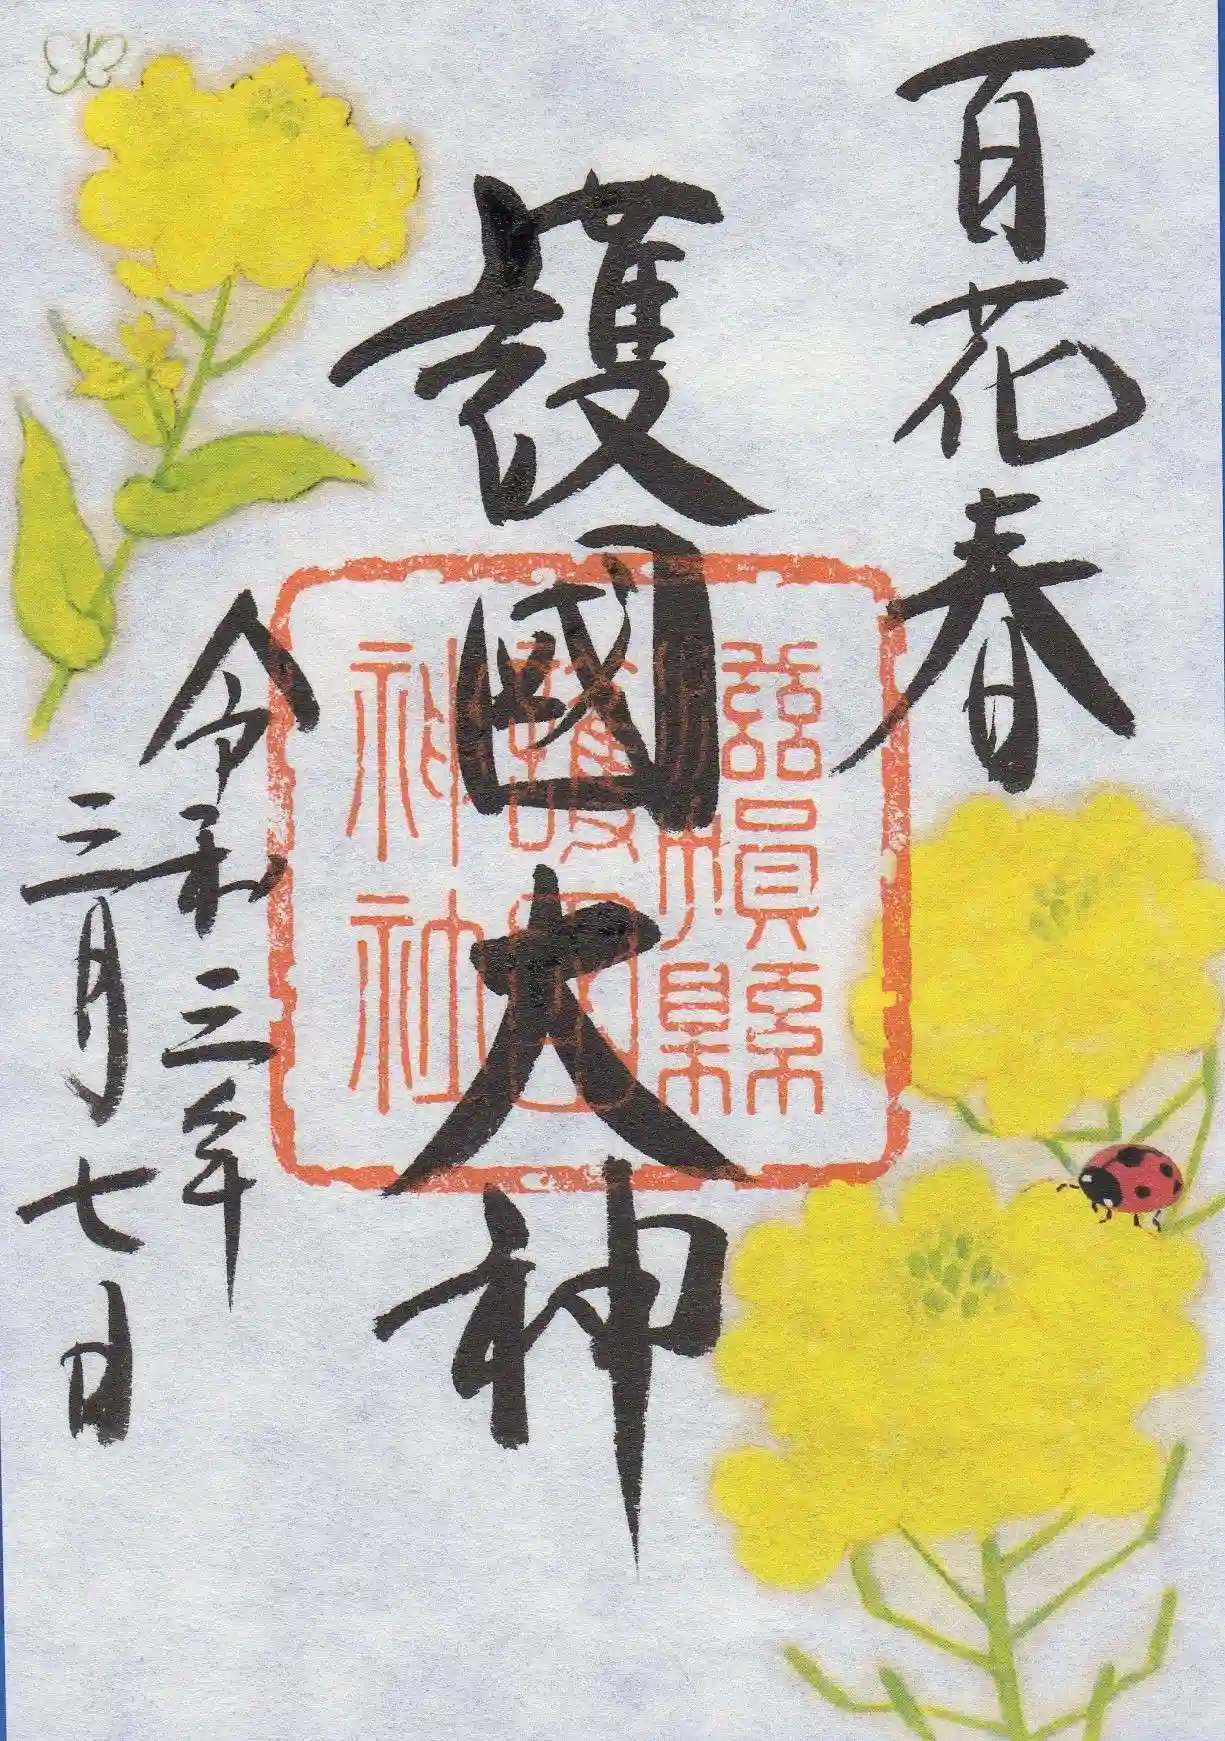 百花春
護國大神
令和三年
三月七日
滋賀縣
護國
神社